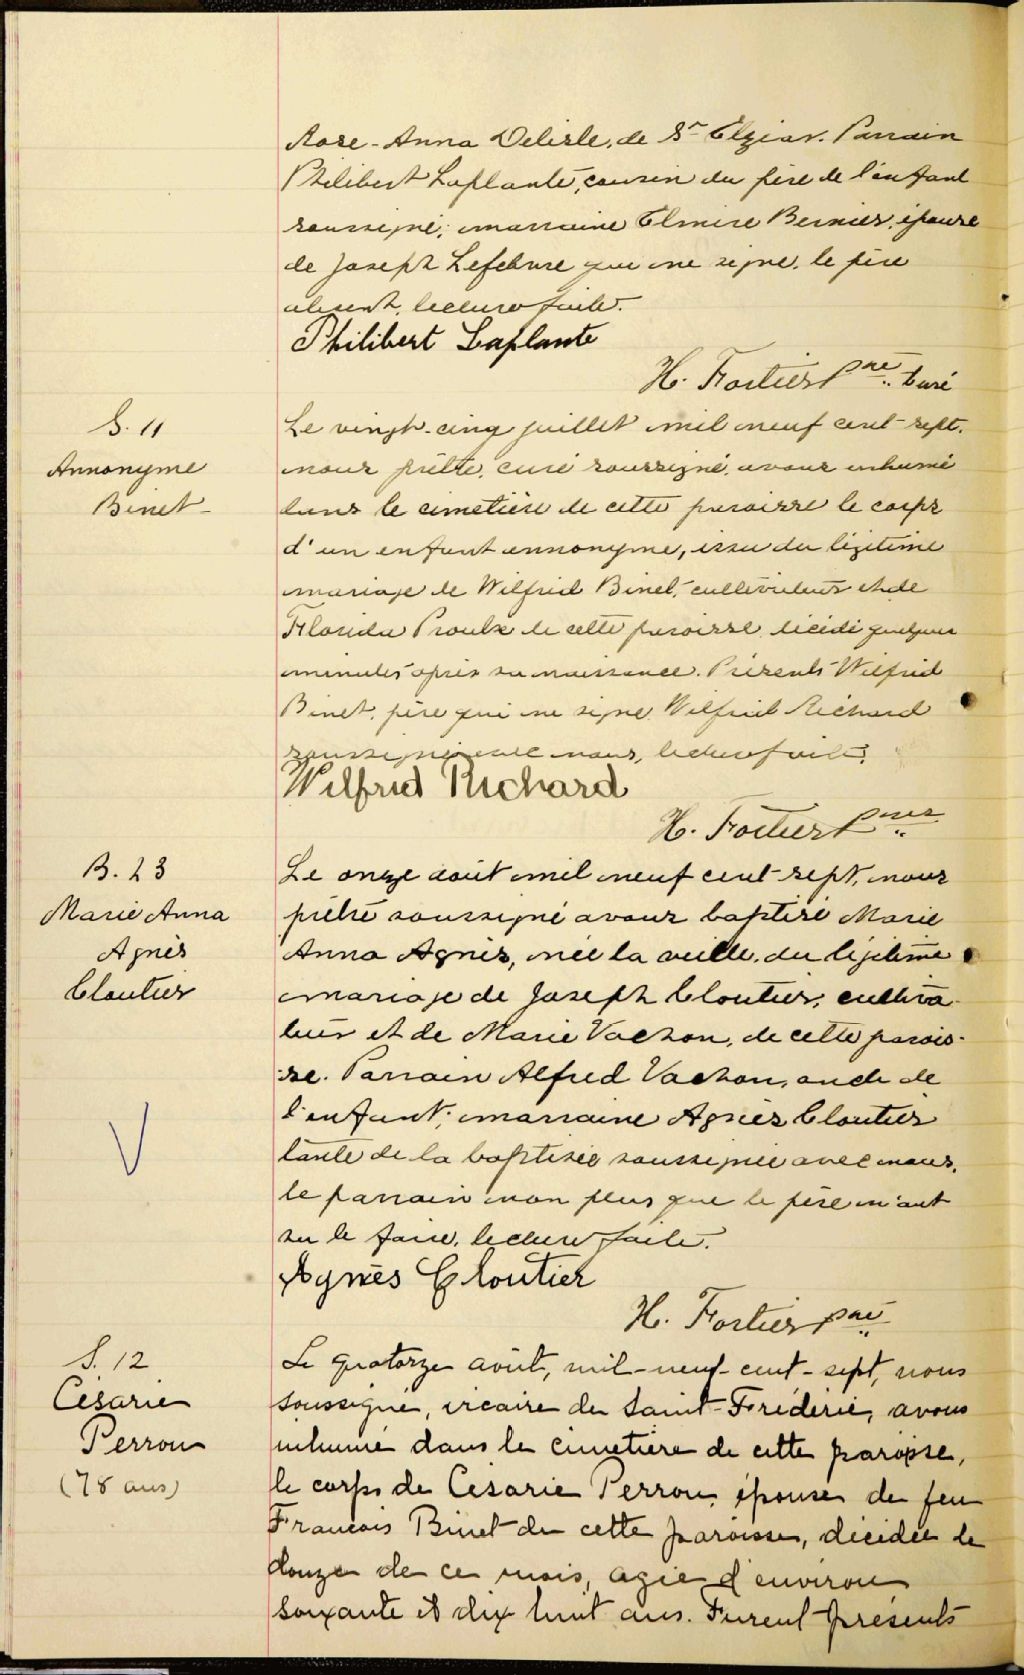 Rose-Anna Delisle, de St Elzéar. Parrain
Philibert Laplante, cousin du père de l'enfant
soussigné; marraine Elmire Bernier, épouse
de Joseph Lefebvre qui ne signe, le père
absent, lecture faite.
Philibert Laplante
H. Fortier Ptre Curé
S. 11
Annonyme
Binet
Le vingt-cinq juillet mil neuf cent-sept,
nous prêtre, curé soussigné, avons inhumé
dans le cimetière de cette paroisse le corps
d'un enfant annonyme, issu du légitime
mariage de Wilfrid Binet, cultivateur et de
Florida Proulx de cette paroisse décédé quelques
minutes après sa naissance. Présents Wilfrid
Binet, père qui ne signe, Wilfrid Richard
soussigné avec nous, lecture faite.
Wilfrid Richard
H. Fortier Ptre
B. 23
Marie Anna
Agnès
Cloutier
Le onze août mil neuf cent-sept, nous
prêtre soussigné avons baptisé Marie
Anna Agnès, née la veille, du légitime
mariage de Joseph Cloutier, cultiva-
teur et de Marie Vachon, de cette parois-
se. Parrain Alfred Vachon, oncle de
l'enfant; marraine Agnès Cloutier
tante de la baptisée soussignée avec nous,
le parrain non plus que le père n'ont
su le faire, lecture faite.
Agnès Cloutier
H. Fortier Ptre
S. 12
Césarie
Perron
(78 ans)
Le quatorze août, mil-neuf-cent-sept, nous
soussigné, vicaire de Saint-Fréderic, avons
inhumé dans le cimetière de cette paroisse,
le corps de Césarie Perron, épouse de feu
Francois Binet de cette paroisse, décédée le
douze de ce mois, agée d'environ
soixante et dix huit ans. Furent présents